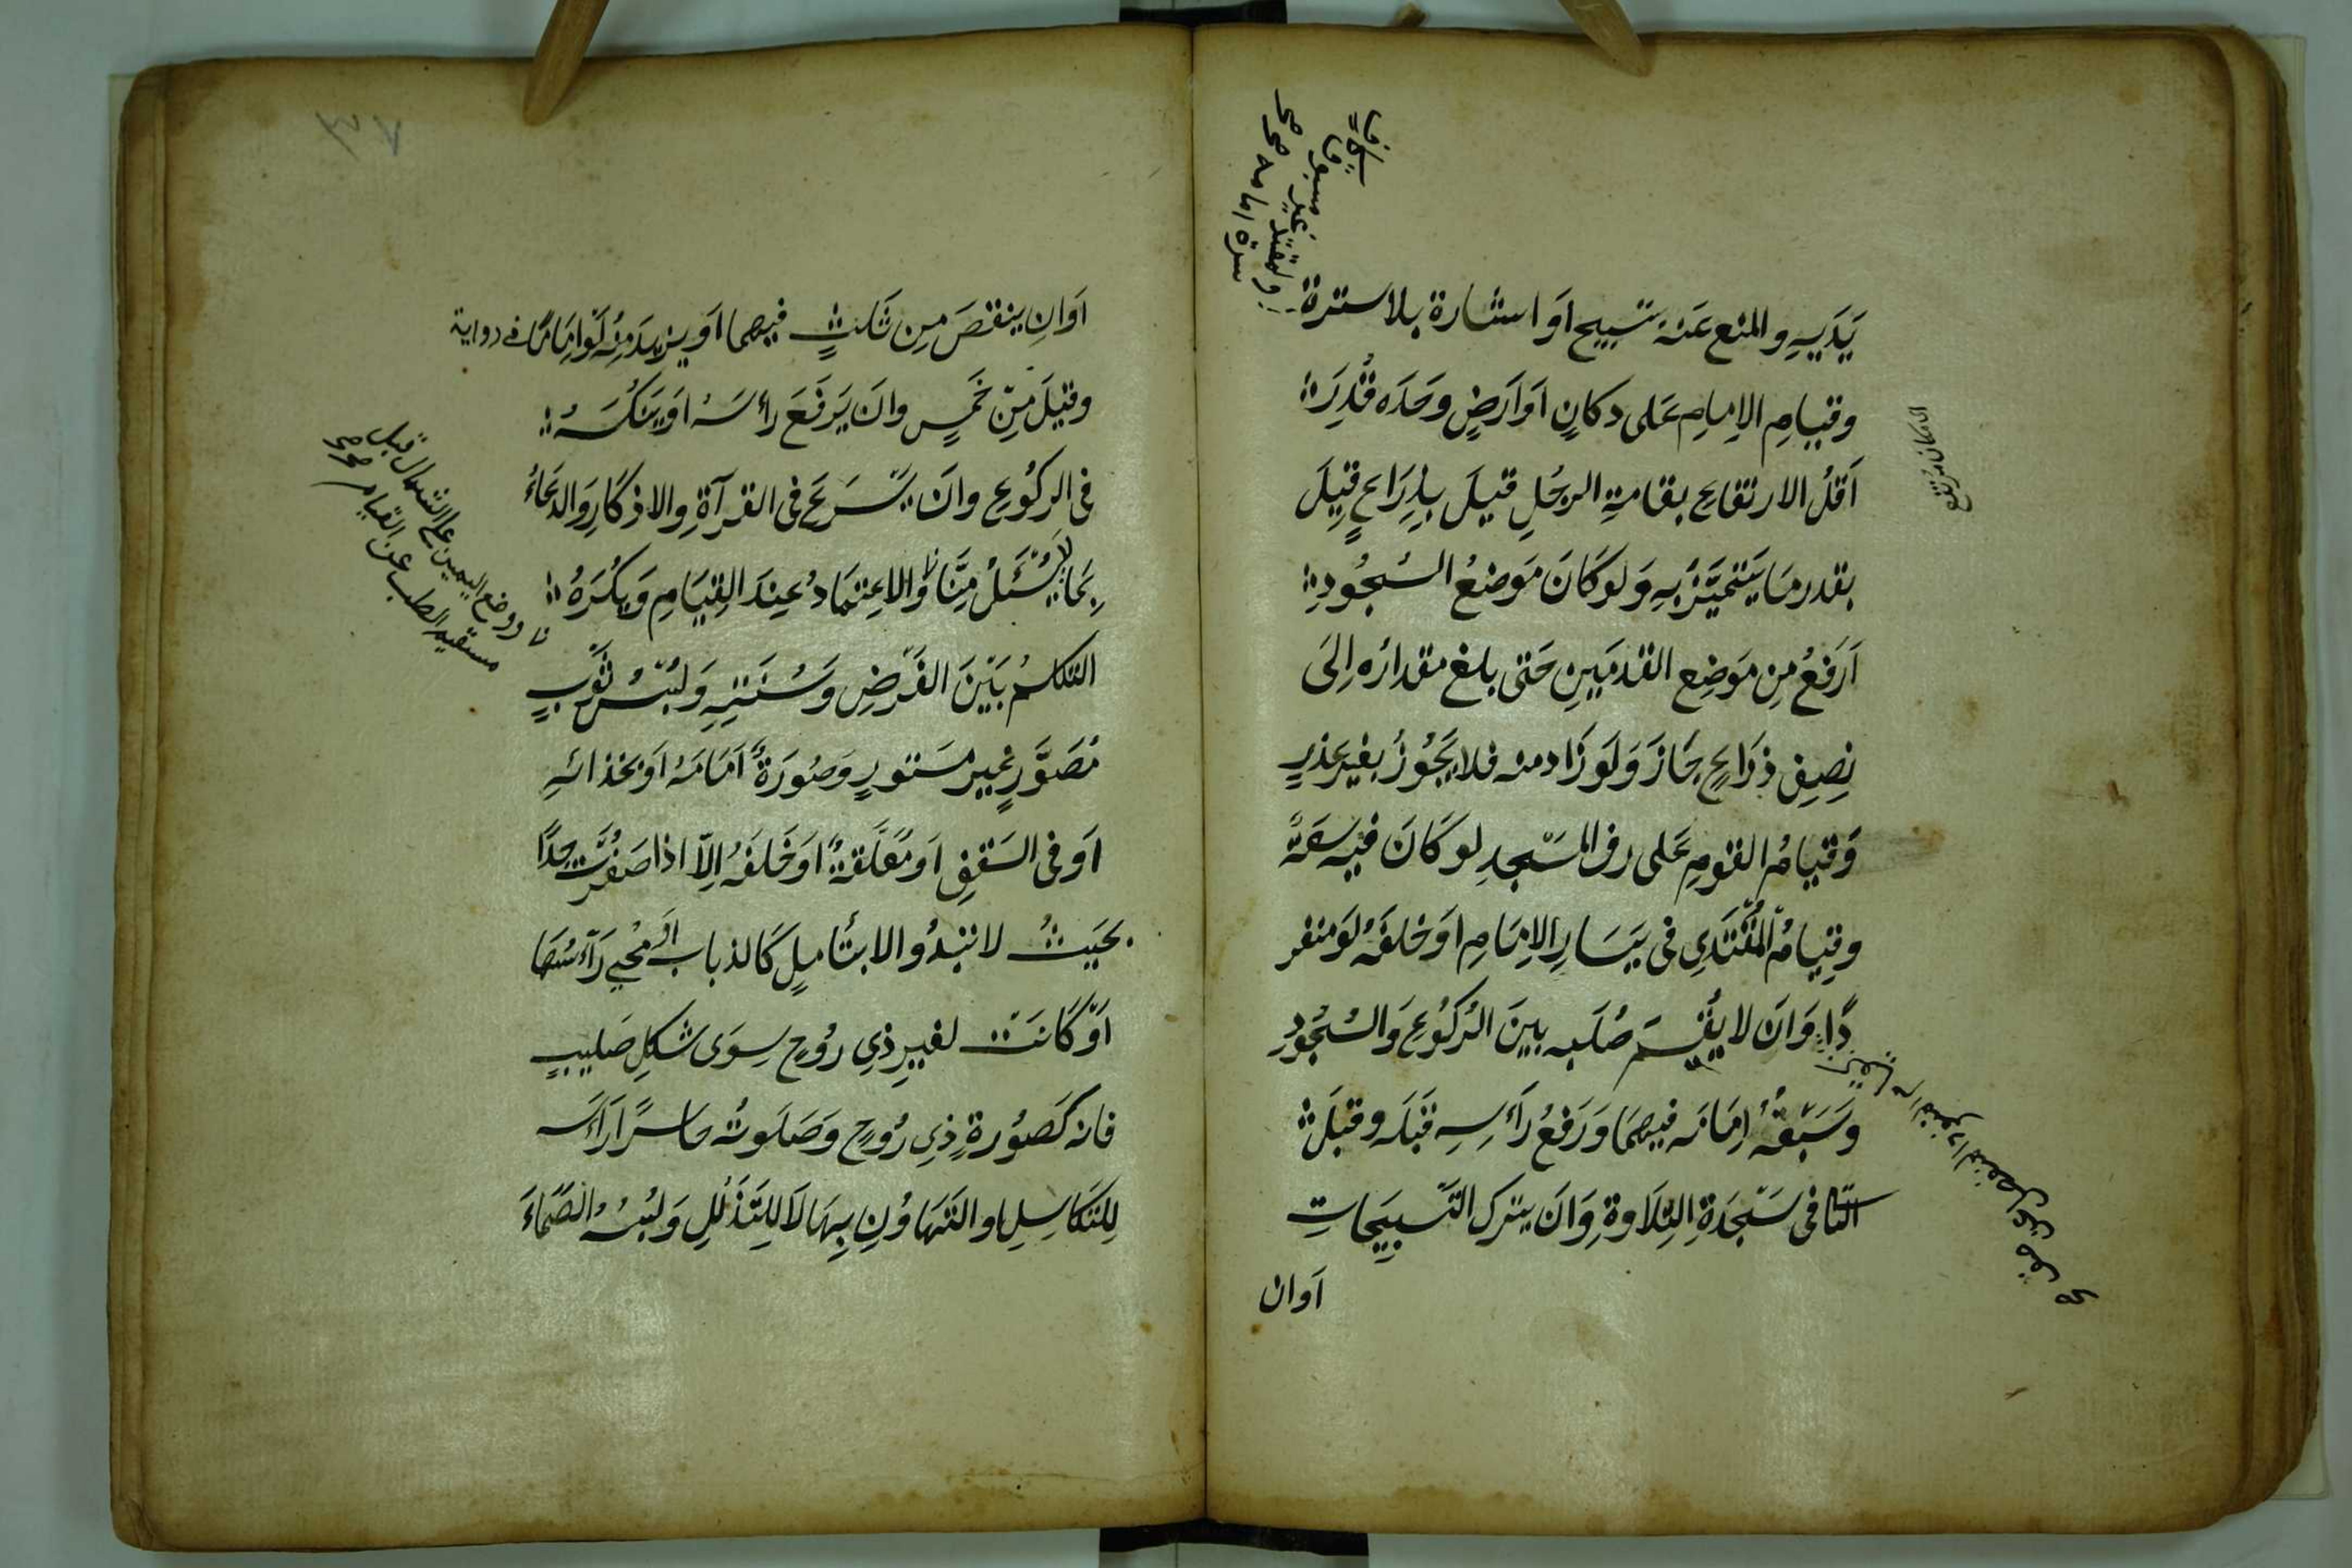 يَدَيهِ والمنع عَنهُ تسبيح اَو استارة بلا سترة
وقيامِ الاِمامِ عَلى دكانٍ اَو اَرضٍ وحَدَه قُدِرَ
اَقلُ الارتفاعِ بقامةِ الرجُلِ قيلَ بِذِرَاعٍ قِيلَ
بقدر مَا يَتميَّزُ بهِ وَلوكَانَ مَوضعُ السُجُودِ
اَرفعُ مِن مَوضِعِ القدمَينِ حَتى بلغ مقدارُه اِلىَ
نِصفِ ذرَاعٍ جَازَ وَلَو زَاد منه فلا يَجُوزُ بغيرِ عذرٍ
وَقيامُ القومِ عَلى رف المسَجدِ لو كَانَ فيه سَعَةً
وقِيامُ المُقتَدِي فى يَسَارِ الاِمَامِ اَو خلفَهُ لَو منفر
دًا وَاَن لا يُقيمَ صُلبه بينَ الرُكوُعِ وَالسُجُودِ
وَسَبقُهُ اِمَامَه فيهمَا وَرَفعُ رَأسِهِ قَبلَه وقبلَ
التا فى سَجَدَةِ التِلَاوةِ وَاَن يترك التَسبيحَاتِ
اَوان
اَوَانِ ينقصَ مِن ثَلثٍ فيهما اَو يزيدَ مِنُه لَو اِمَامًا فے رواية
وقيلَ مِن خَمسٍ واَن يَرفَعَ رأسَهُ اَو ينَكُسَهُ
فى الركُوعِ واَن يسَرَعَ فى القرآةِ والاذكارِ وَالدعَاءُ
بمَا لا يُسئَلُ مِنَّا وَالاِعتِمَادُ عِندَ القِيَامِ وَيكُرَهُ
التكلمُ بَينَ الفَرضِ وَسُنَتِهِ وَلبُسُ ثوَبٍ
مُصَوَّرٍ غيرِ مَستورٍ وَصُورَةٌ اَمَامَهُ اَو بحذائهِ
اَو فى السَقفِ اَو مُعَلَّقةٌ اَو خَلفَهُ اِلاّ اذا صَغُرَت جِدًا
بحَيثُ لا تبدُو الا بتأملٍ كَالذباب اَو مُحيَ رَاَسُهَا
اَو كَانتَ لغيرِ ذِي رُوحٍ سِوَى شكلِ صَليبٍ
فانه كَصُورةِ ذِي رُوحٍ وَصَلَوتُه حَاسرًا رَاَسَه
لِلتَكَاسِلِ او التَهَاوُنِ بِهَا لاَ لِلتَذَلُلِ وَلبُسُ الصَمّاءَ
ووضع اليمين على الشمال قبل